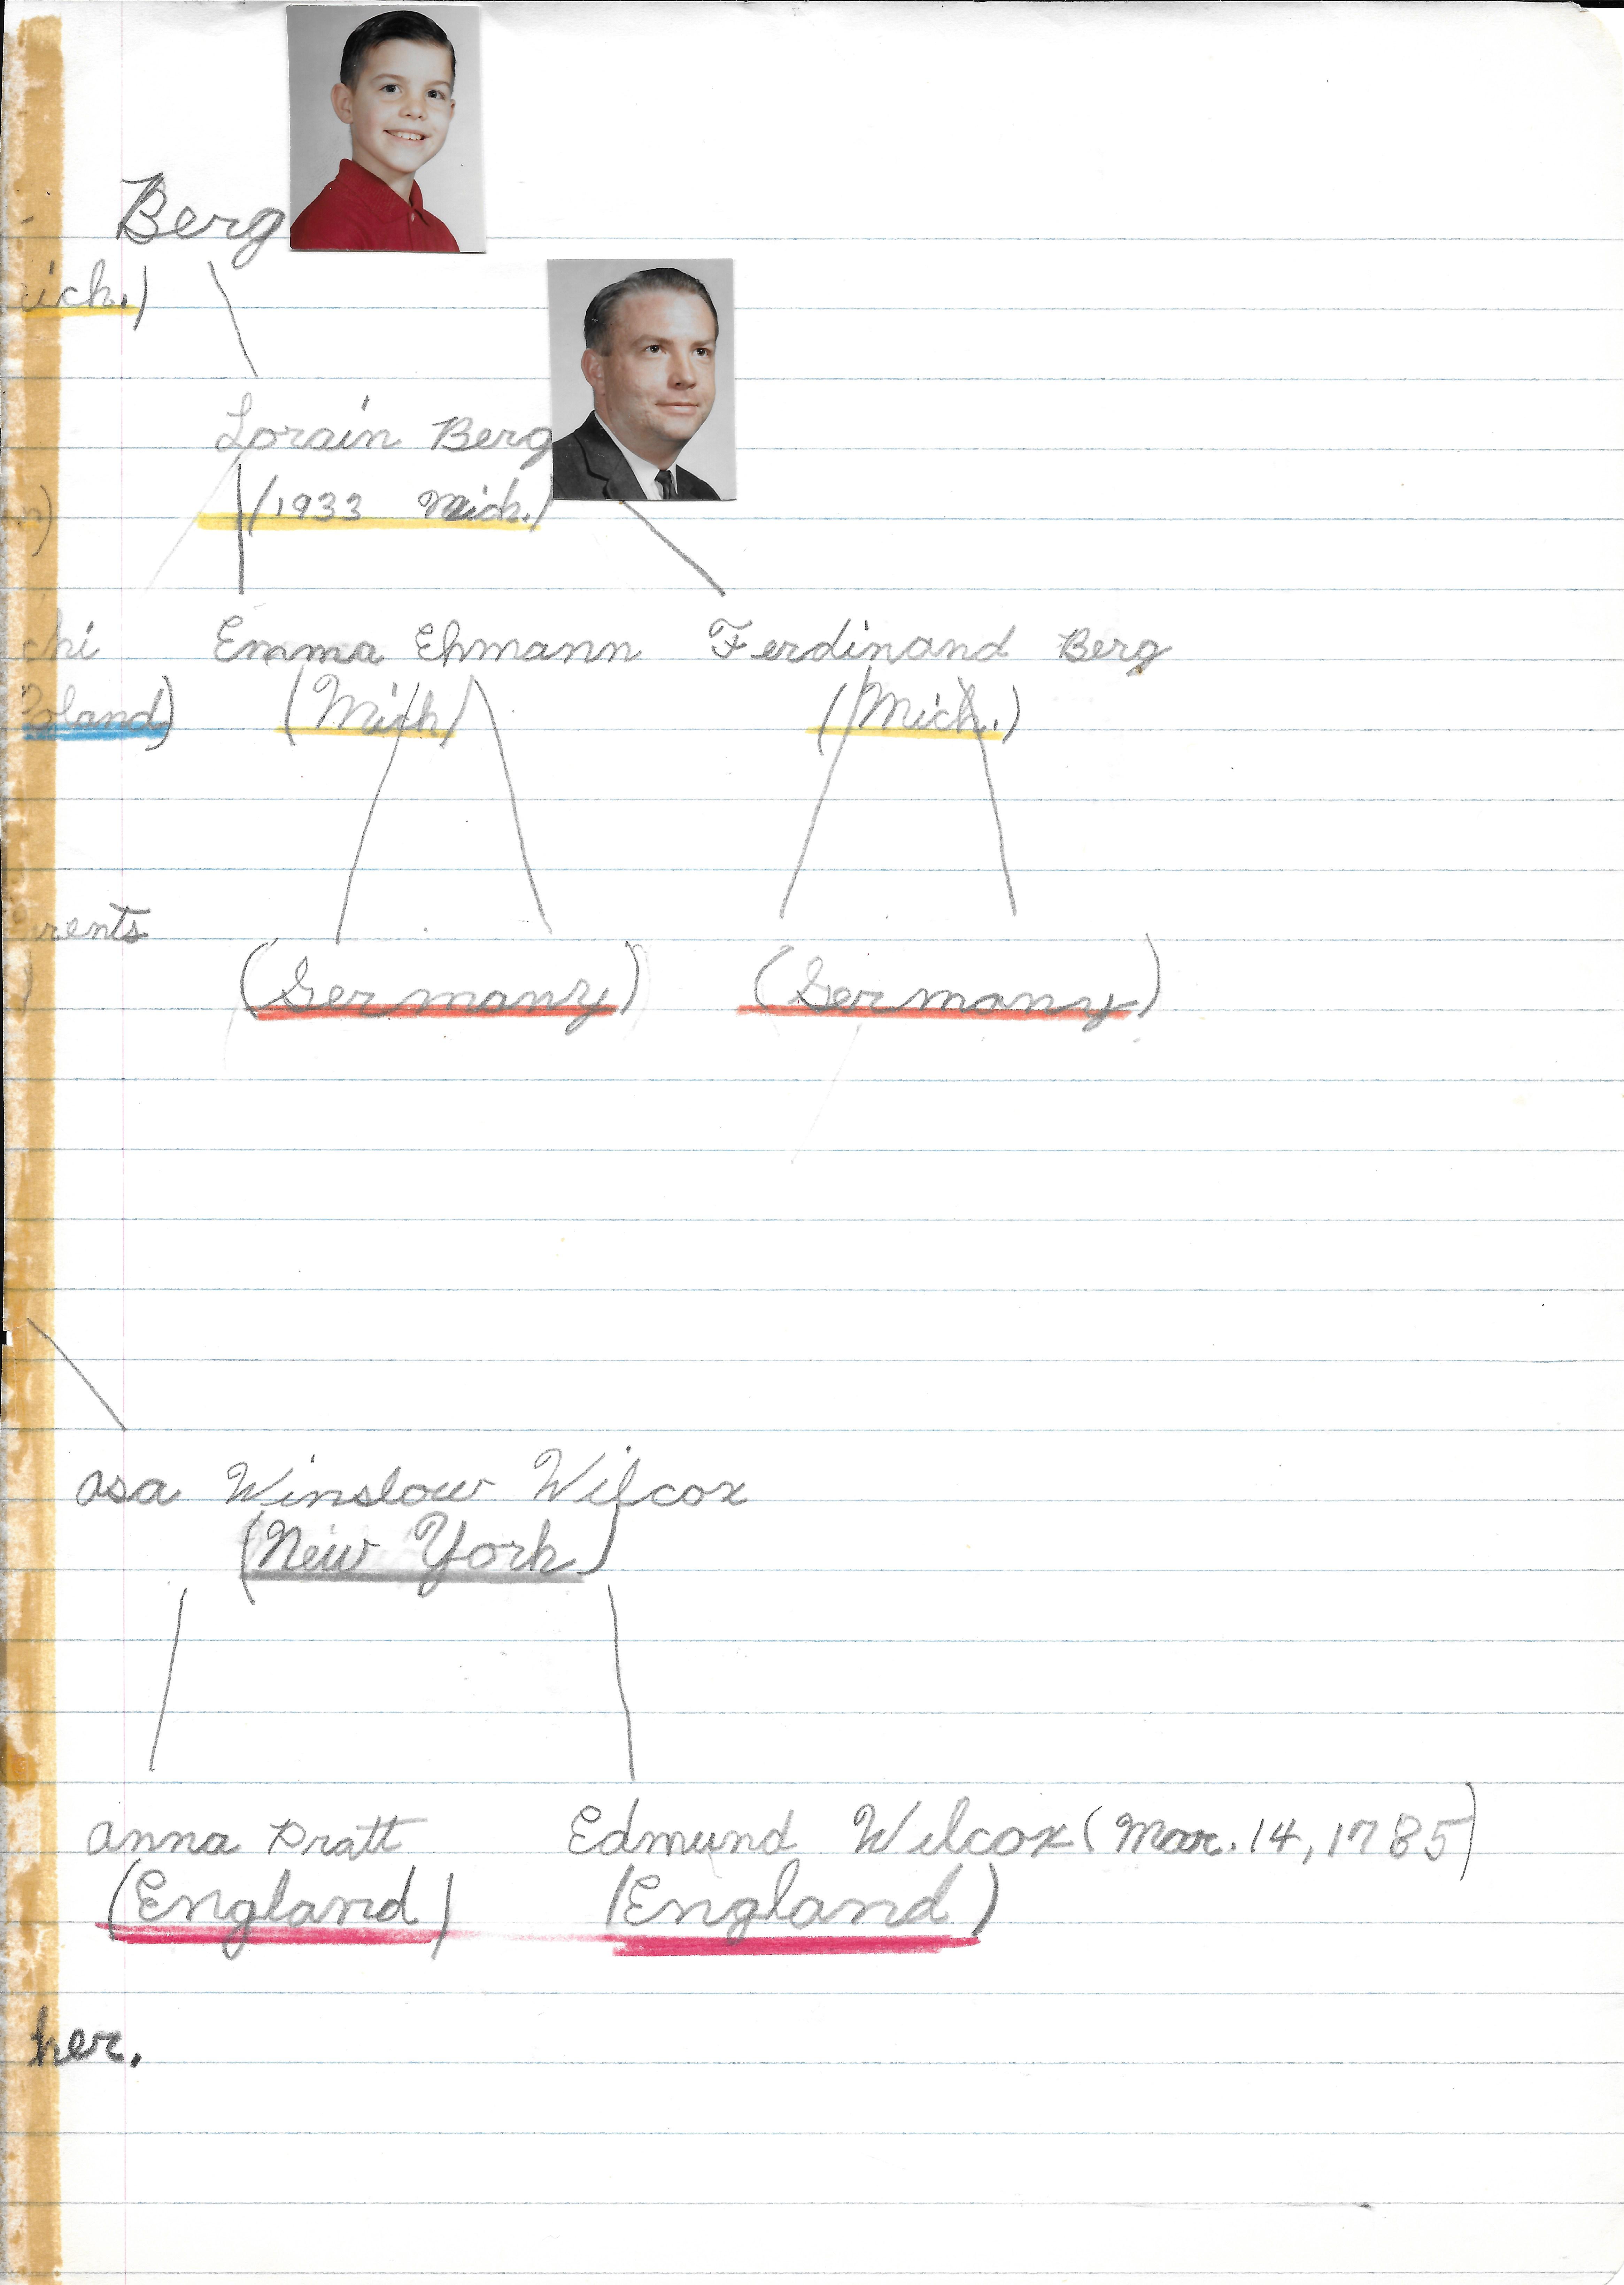 Berg
ich.)
Lorain Berg
(1933 Mich.)
chi Emma Ehmann Ferdinand Berg
Poland) (Mich) (Mich.)
rents
(Germany) (Germany)
asa Winslow Wilcox
(New York)
anna Pratt Edmund Wilcox (Mar. 14, 1785)
(England) (England)
her.